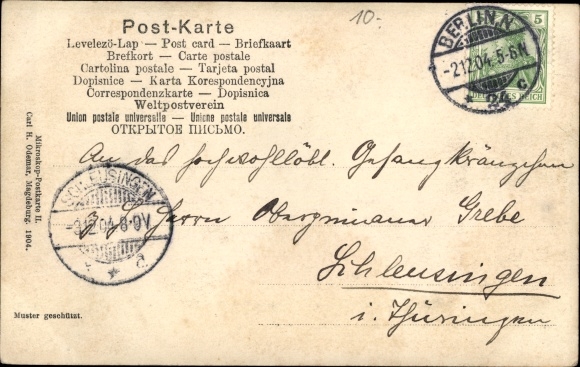 Post-Karte
Levelező-Lap — Post card — Briefkaart
Brefkort — Carte postale
Cartolina postale — Tarjeta postal
Dopisnice — Karta Korespondencyjna
Correspondenzkarte — Dopisnica
Weltpostverein
Union postale universelle — Unione postale universale
ОТКРЫТОЕ ПИСЬМО.
10.-
BERLIN.N.
-2.12.04.5-6N
* 24 c
5
DEUTSCHES REICH
An das hochwohllöbl. Gesangkränzchen
z. H. Herrn Obergrimauer Grebe
Schleusingen
i. Thüringen
SCHLEUSINGEN
-3.12.04.8-9V
* * a
Mikroskop-Postkarte II.
Carl H. Odemar, Magdeburg. 1904.
Muster geschützt.